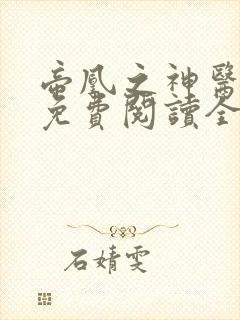 帝凰之神醫
免費閱讀全
石婧雯